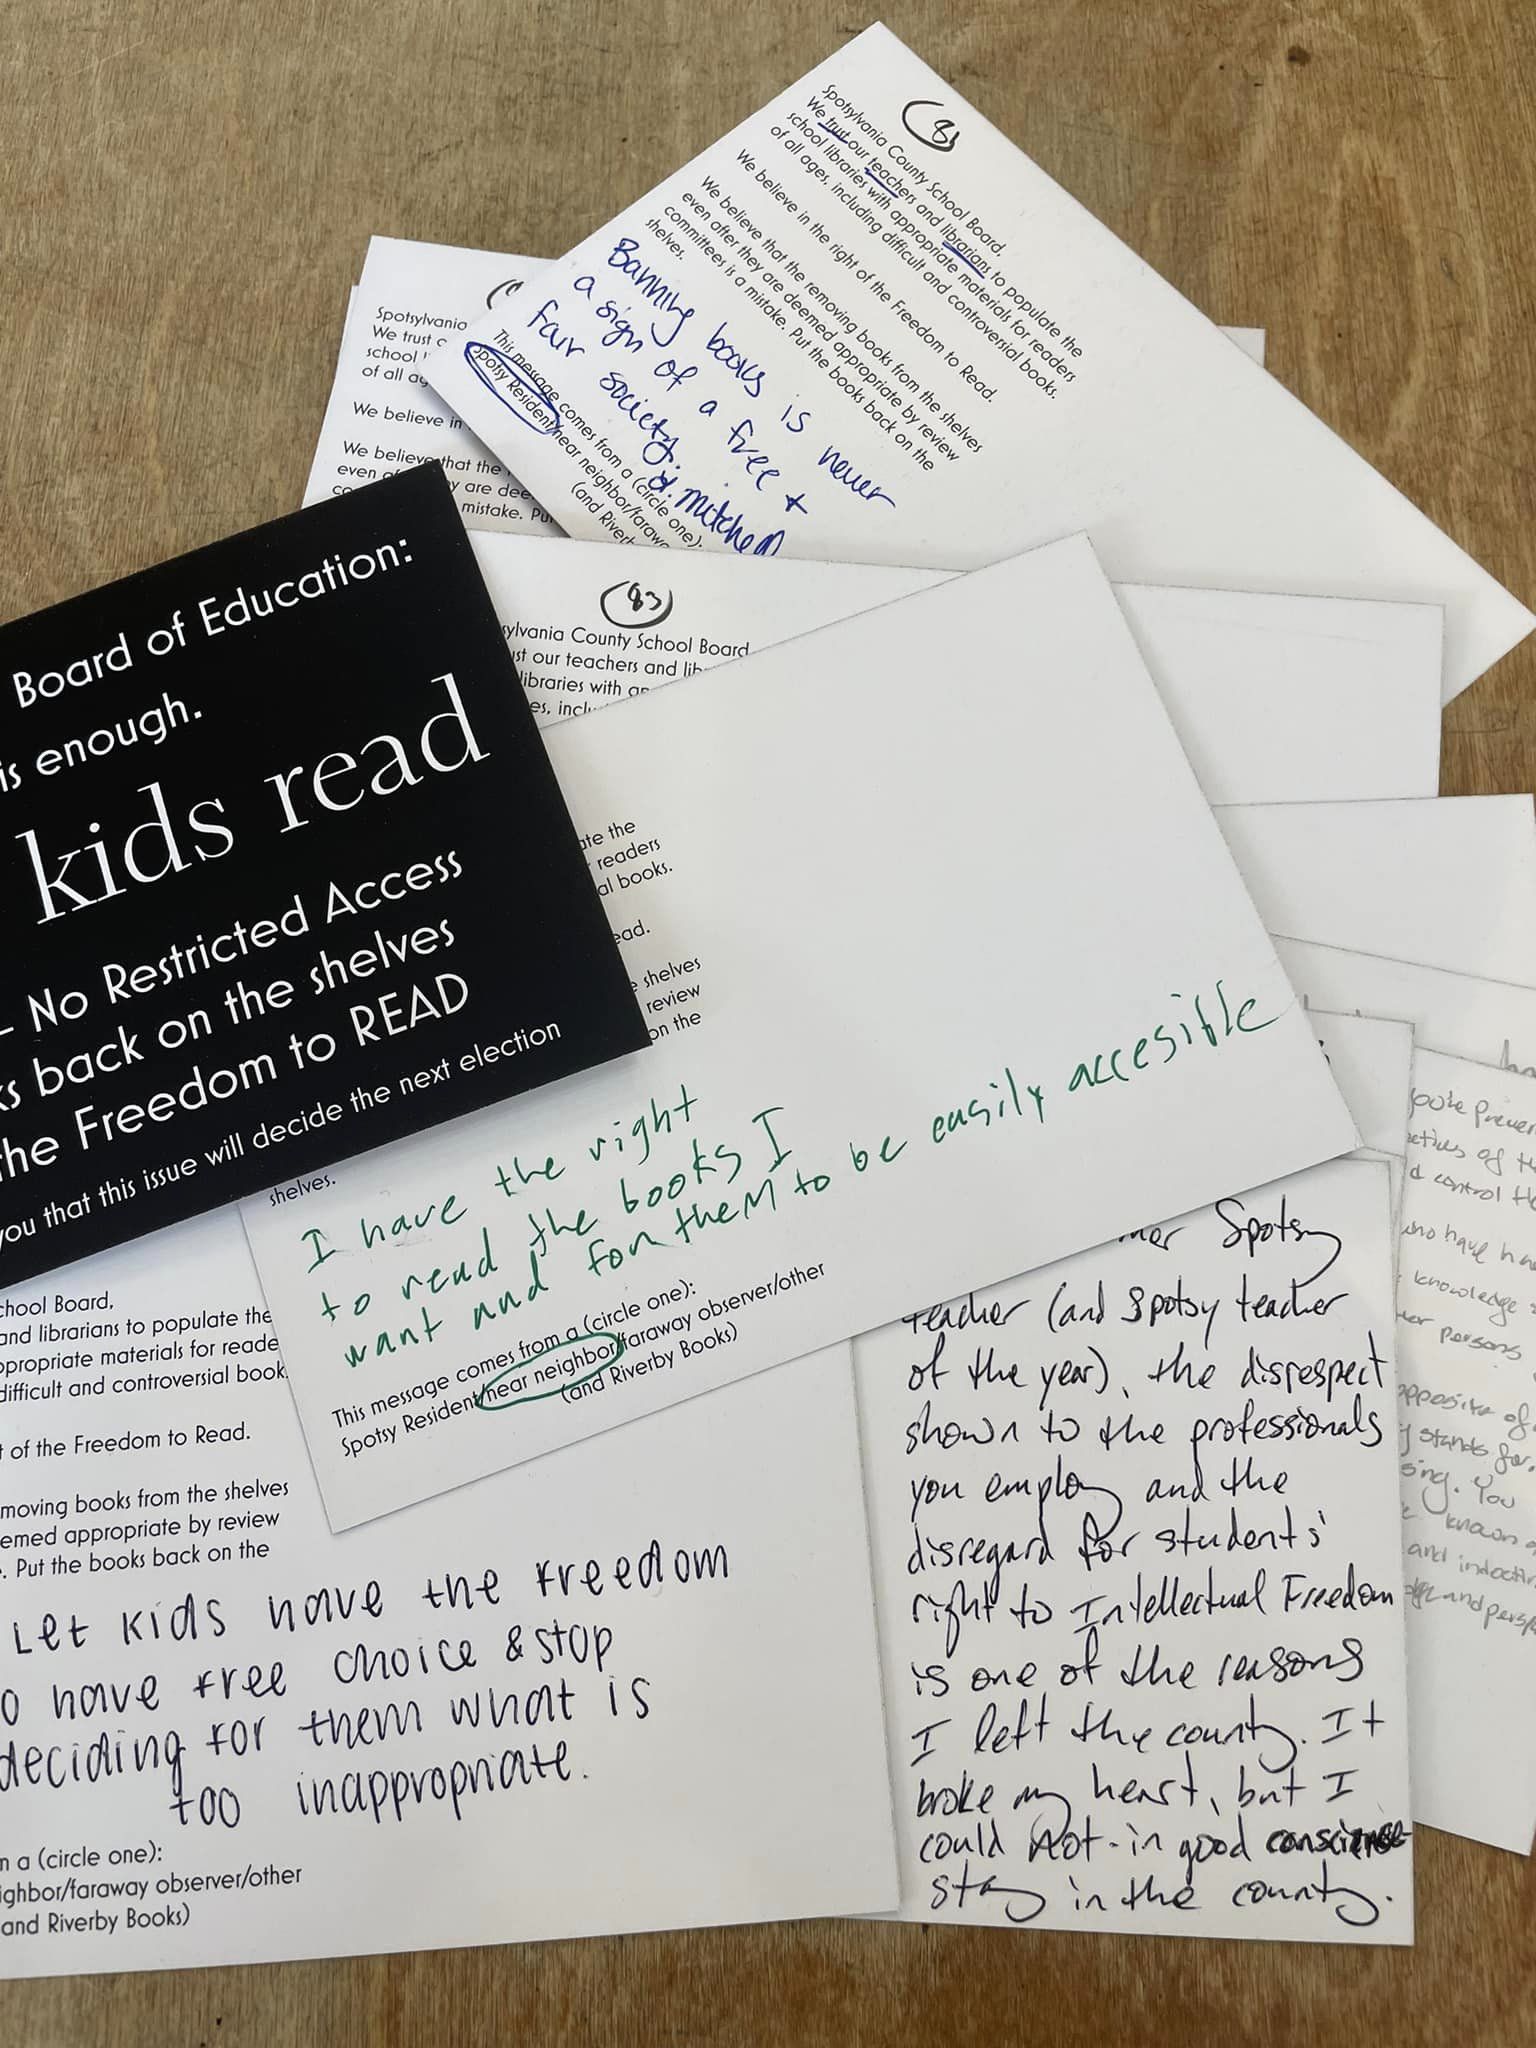 83
Spotsylvania County School Board,
We trust our teachers and librarians to populate the
school libraries with appropriate materials for readers
of all ages, including difficult and controversial books.
We believe in the right of the Freedom to Read.
We believe that the removing books from the shelves
even after they are deemed appropriate by review
committees is a mistake. Put the books back on the
shelves.
Banning books is never
a sign of a free +
fair society.
This message comes from a (circle one):
Spotsy Resident/near neighbor/
(and
We trust
school
of all
We believe in
We believe that the
even
mistake.
Board of Education:
is enough.
kids read
- No Restricted Access
back on the shelves
the Freedom to READ
you that this issue will decide the next election
83
County School Board
our teachers and
libraries with
ate the
readers
al books.
shelves
review
on the
shelves.
I have the right
to read the books I
want and for theM to be easily accesible
This message comes from a (circle one):
Spotsy Resident/near neighbor/faraway observer/other
(and Riverby Books)
chool Board,
and librarians to populate the
ppropriate materials for reade
difficult and controversial book
t of the Freedom to Read.
moving books from the shelves
emed appropriate by review
. Put the books back on the
Let kids have the freedom
o have free choice & stop
deciding for them what is
too inappropriate.
m a (circle one):
ighbor/faraway observer/other
and Riverby Books)
Spotsy
teacher (and Spotsy teacher
of the year), the disrespect
shown to the professionals
you employ and the
disregard for students'
right to Intellectual Freedom
is one of the reasons
I left the county. It
broke my heart, but I
could not in good conscience
stay in the county.
of
control
who have
knowledge
persons
opposite of
stands for.
You
known
and
and